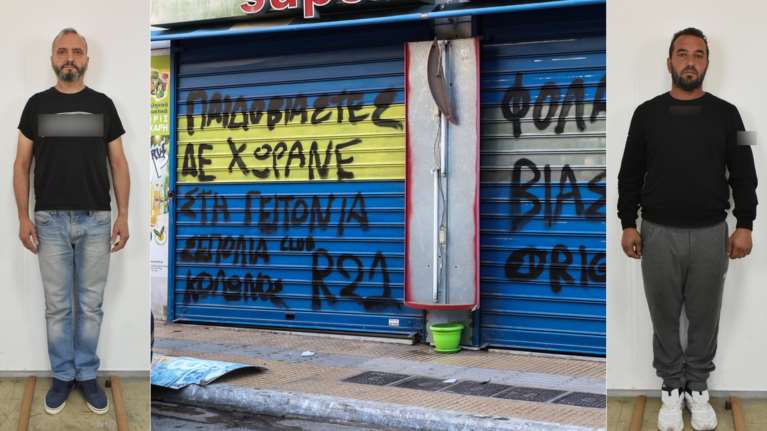 ΠΑΙΔΟΒΙΑΣΤΕΣ
ΔΕ ΧΩΡΑΝΕ
ΣΤΗ ΓΕΙΤΟΝΙΑ
ΣΕΠΟΛΙΑ CLUB
ΚΟΛΩΝΟΣ R21
ΦΟΛΑ
ΒΙΑΣ
ORIG